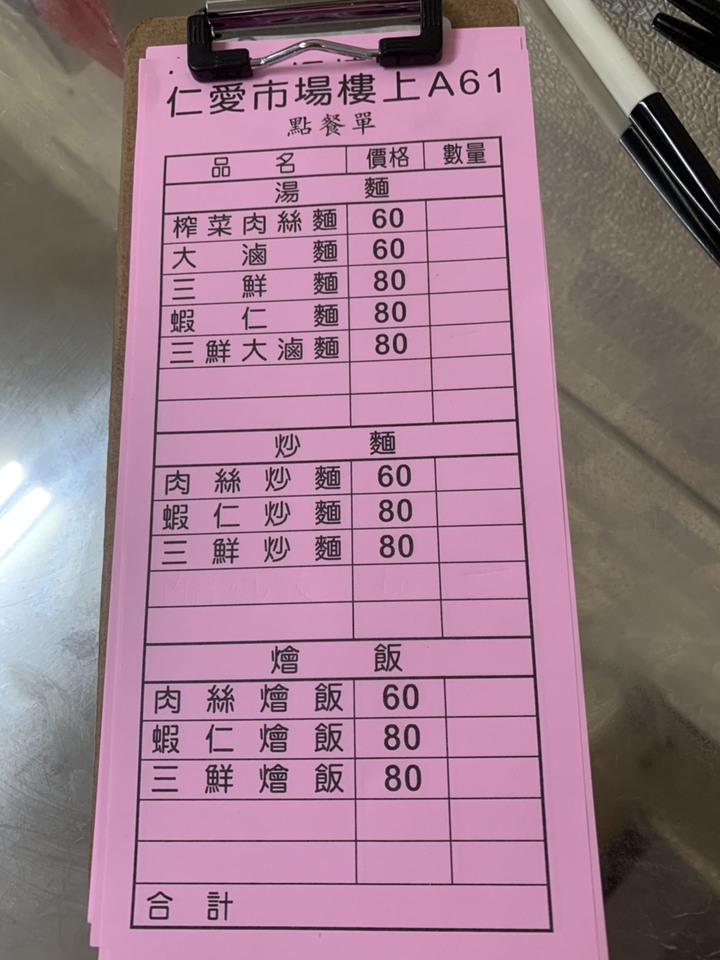 仁愛市場樓上A61
點餐單
品名 價格 數量
湯麵
榨菜肉絲麵 60
大滷麵 60
三鮮麵 80
蝦仁麵 80
三鮮大滷麵 80
炒麵
肉絲炒麵 60
蝦仁炒麵 80
三鮮炒麵 80
燴飯
肉絲燴飯 60
蝦仁燴飯 80
三鮮燴飯 80
合計